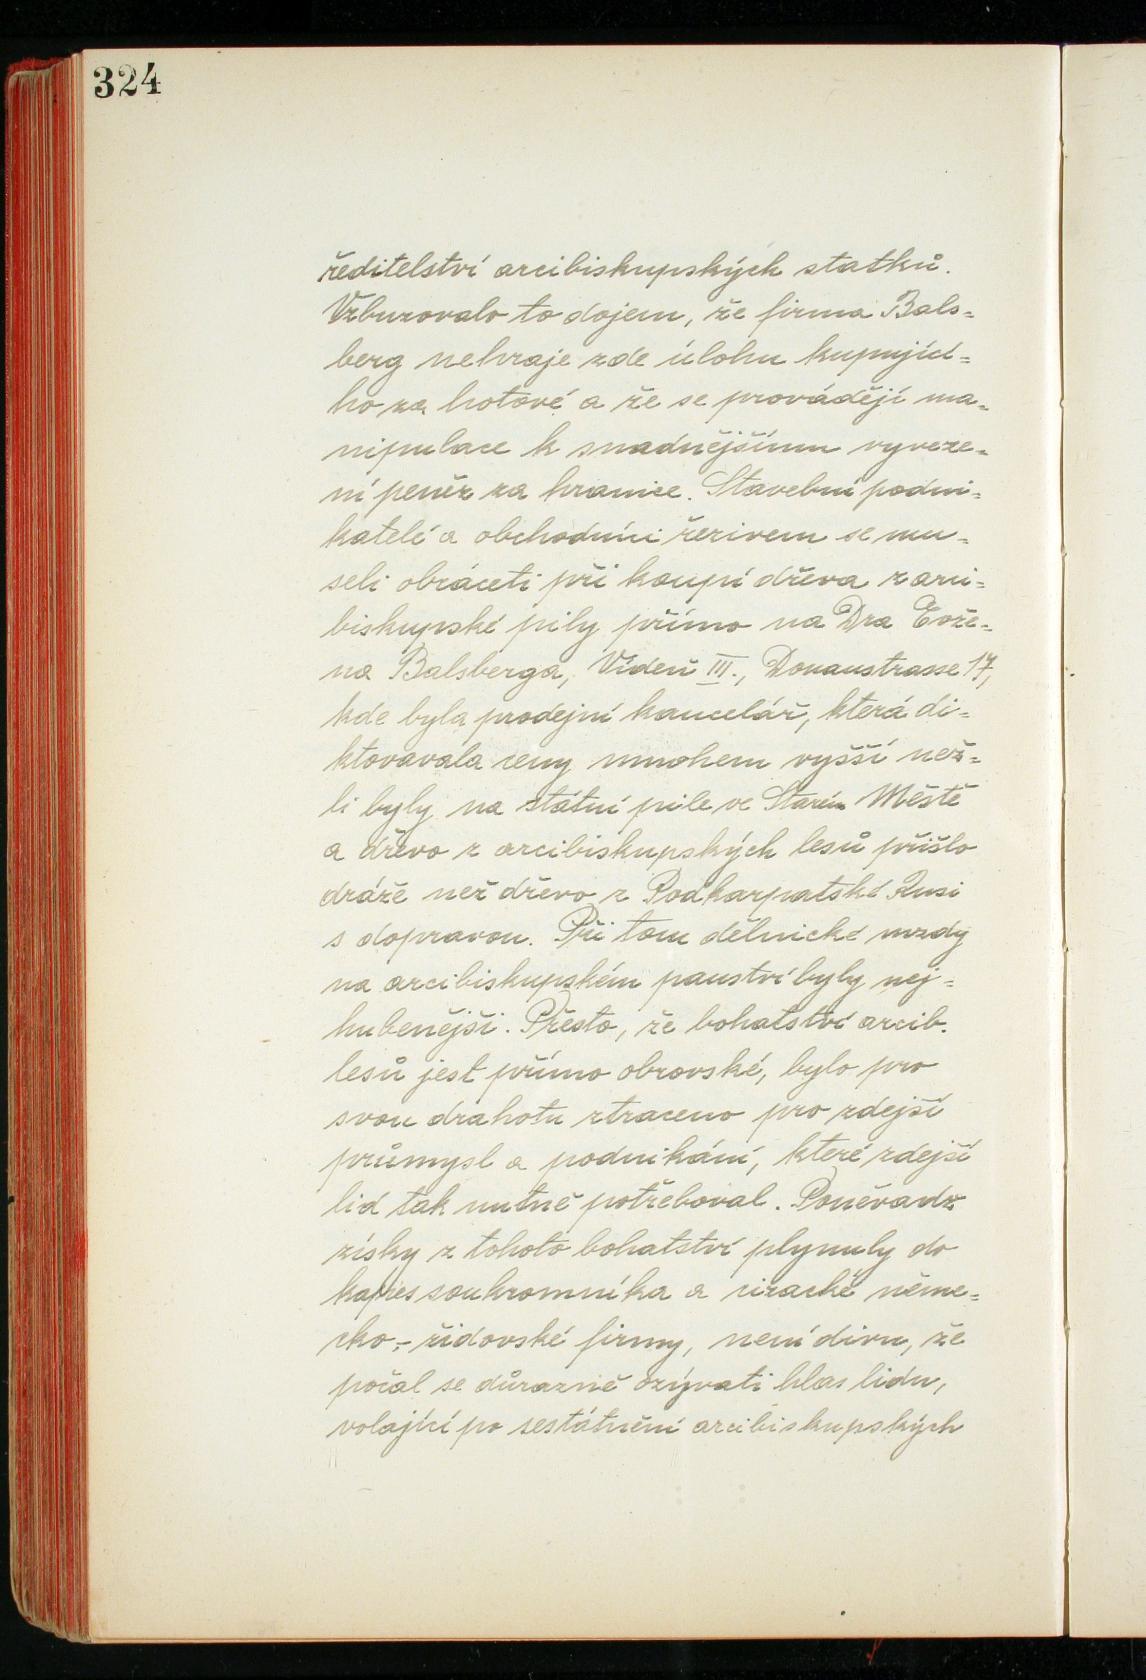 324
ředitelství arcibiskupských statků.
Vzbuzovalo to dojem, že firma Bals=
berg nehraje zde úlohu kupujíci=
ho za hotové a že se provádějí ma=
nipulace k snadnějšímu vyveze=
ní peněz za hranice. Stavební podni=
katelé a obchodníci řezivem se mu=
seli obraceti při koupi dřeva z arci=
biskupské pily přímo na Dra Evže=
na Balsberga, Vídeň III., Donaustrasse 17,
kde byla prodejní kancelář, která di=
ktovavala ceny mnohem vyšší než=
li byly na státní pile ve Starém Městě
a dřevo z arcibiskupských lesů přišlo
dráže než dřevo z Podkarpatské Rusi
s dopravou. Při tom dělnické mzdy
na arcibiskupském panství byly nej=
hubenější. Přesto, že bohatství arcib.
lesů jest přímo obrovské, bylo pro
svou drahotu ztraceno pro zdejší
průmysl a podnikání, které zdejší
lid tak nutně potřeboval. Poněvadž
zisky z tohoto bohatství plynuly do
kapes soukromníka a cizácké něme=
cko-židovské firmy, není divu, že
počal se důrazně ozývati hlas lidu,
volající po sestátnění arcibiskupských